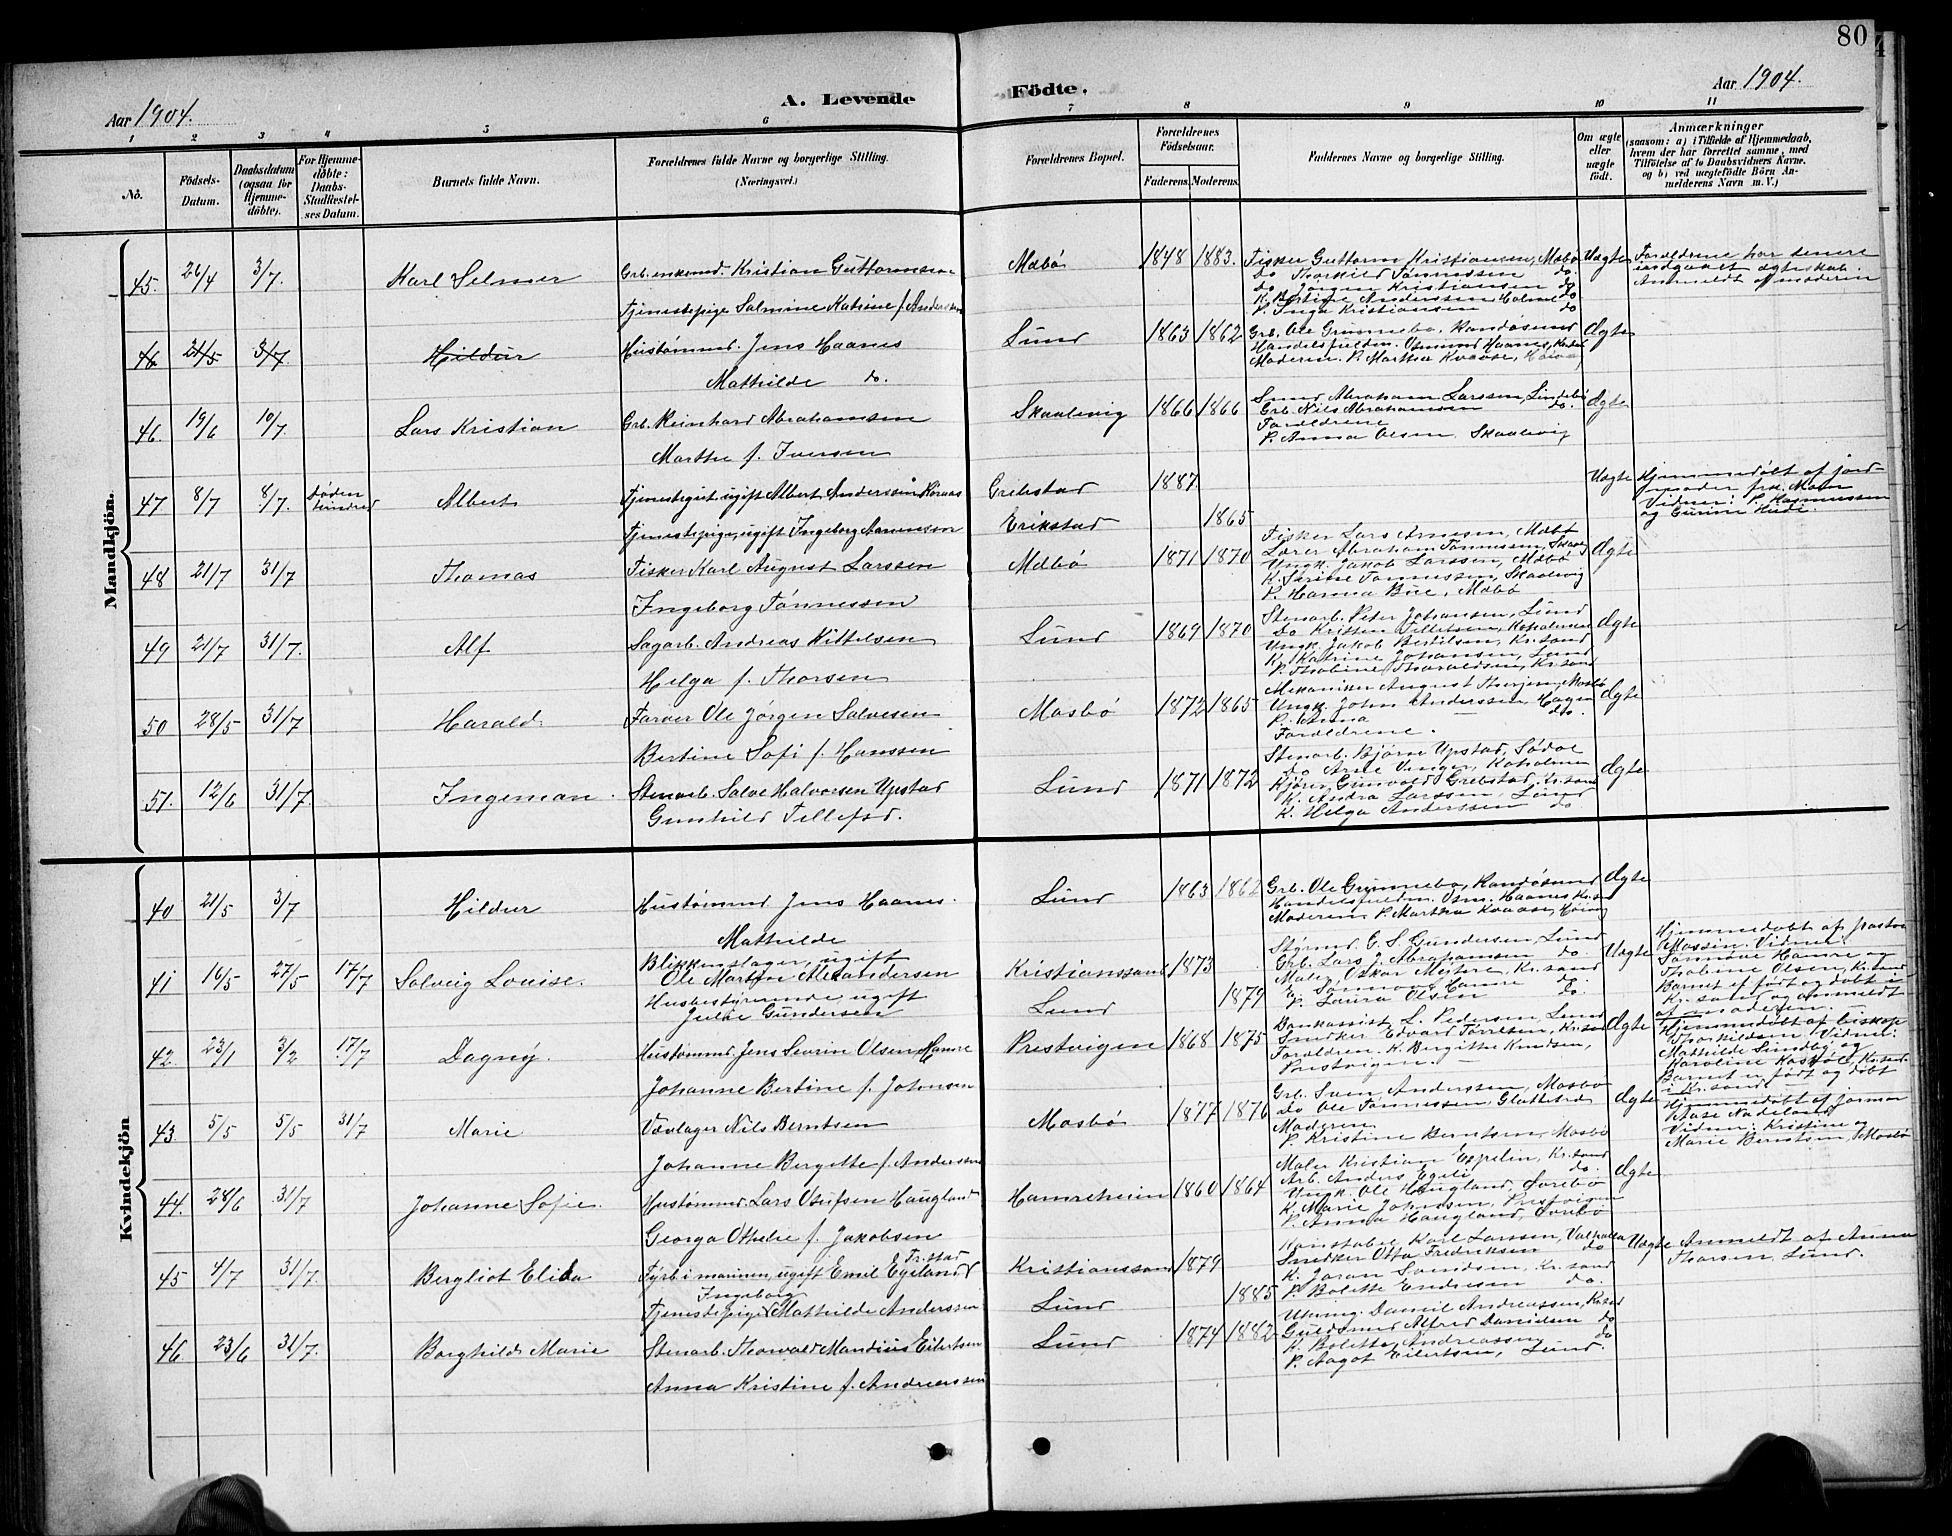 80
Aar 1904.
A. Levende Födte.
Aar 1904.
1 2 3 4 5 6 7 8 9 10 11
No.
Födsels-Datum.
Daabsdatum (ogsaa for Hjemme-döbte).
For Hjemme-döbte: Daabs-Stadfæstel-ses Datum.
Barnets fulde Navn.
Forældrenes fulde Navne og borgerlige Stilling.
(Næringsvei.)
Forældrenes Bopæl.
Forældrenes Födselsaar.
Faderens. Moderens.
Faddernes Navne og borgerlige Stilling.
Om ægte eller uægte födt.
Anmærkninger
(saasom: a) i Tilfælde af Hjemmedaab,
hvem der har forrettet samme, med
Tilföielse af to Daabsvidners Navne.
og b) ved uægtefödte Börn An-
melderens Navn m. V.)
Mandkjön.
45. 26/4 3/7. Karl Selmer
Grb. enkemd. Kristian Guttormsen
Tjenestepige Salmine Katrine f. Anderssen
Mæbø 1848 1883.
Fisker Guttorm Kristiansen, Mæbø
Do Thorkild Tønnessen do
Do Jørgen Kristiansen do
K. Bertine Anderssen Holme do
P. Inga Kristiansen do
Uægte
Forældrene har senere
indgaaet ægteskab.
Anmeldt af moderen
46 21/5 3/7 Hildur
Hustømmd. Jens Haanes
Mathilde do.
Lund 1863 1862
Grb. Ole Grimmebø, Randøsund
Handelsfuldm. Osmund Haanes, Kr.sand
Moderen. P. Martha Kvaase, Høivaag
Ægte
46. 19/6 10/7. Lars Kristian
Grb. Reinhard Abrahamsen
Marthe f. Iversen
Skaalevig 1866 1866
Smed Abraham Larssen, Lindebø
Grb. Nils Abrahamsen do.
Forældrene
P. Anna Olsen Skaalevig
Ægte
47 8/7 8/7. Døden hindred Albert
Tjenestegut ugift Albert Anderssen Hørnes
Tjenestepige, ugift Ingeborg Aanenssen
Grebstad 1887
Erikstad 1865
Uægte
Hjemmedøbt af jord-
moder frk. Moen
Vidner: P. Rasmussen
og Gurine Heidi.
48 21/7 31/7 Thomas
Fisker Karl August Larssen
Ingeborg Tønnessen
Mæbø 1871 1870
Fisker Lars Arnesen, Mæbø
Lærer Abraham Tønnessen, Skaalevig
Ungk. Jakob Larssen, Mæbø
K. Serine Tønnessen, Skaalevig
P. Hanna Bue, Mæbø
Ægte
49 21/7 31/7. Alf
Sagarb. Andreas Kittelsen
Helga f. Thorsen
Lund 1869 1870
Stenarb. Peter Johansen, Lund
Do Kristen Tellefsen, Kokolemen
Ungk. Jakob Bertilsen, Kr.sand
K. Katrine Johansen, Lund
P. Thobine Tharaldsen, Kr.sand
Ægte
50 28/5 31/7 Harald.
Farver Ole Jørgen Salvesen
Bertine Sofi f. Hanssen
Mosbø 1872 1865
Mekaniker August Therjesen, Mosbø
Ungk. John Anderssen, Hagen
P. Anna — do.
Forældrene.
Ægte
51. 12/6 31/7. Ingeman.
Stenarb. Salve Halvorsen Upstad
Gunhild Tellefsd.
Lund 1871 1872
Stenarb. Bjørn Upstad, Sødal
Do Arne Unger, Kokolemen
Kjører Grunvald Grebstad, Kr.sand
K. Andra Larssen, Lund
K. Helga Anderssen do
Ægte
Kvindekjön
40 21/5 3/7 Hildur
Hustømmd Jens Haanes.
Mathilde
Lund 1863 1862
Grb. Ole Grimmebø, Randøsund
Handelsfuldm. Osm. Haanes Kr.sand
Moderen P. Martha Kvaase, Høivaag
Ægte
41 16/5 27/5 17/7 Solveig Louise.
Blikkenslager, ugift
Ole Martin Alexandersen
Husbestyrerinde ugift
Julie Gundersen
Kristianssand 1873
Lund 1879
Styrmd. G. S. Gundersen, Lund
Grb. Lars J. Abrahamsen do.
Maler Oskar Meyhre, Kr.sand
E. Sønnøve Hamre do.
P. Laura Olsen do.
Uægte
Hjemmedøbt af pastor
Mossin. Vidner:
Sønnøve Hamre og
Thobine Olsen, Kr.sand
Barnet er født og døbt i
Kr.sand og anmeldt
af moderen.
42. 23/1 3/2 17/7 Dagny.
Hustømmd Jens Severin Olsen Hamre
Johanne Bertine f. Johnsen
Prestvigen 1868 1875
Bankassist. L. Pedersen, Lund
Snedker Edvard Tørresen, Kr.sand
Forældren. K. Bergithe Knudsen,
Prestvigen. —
Ægte
Hjemmedøbt af biskop
Thorkildsen, Vidner:
Mathilde Sundby og
Karoline Kosbøl, Kr.sand.
Barnet er født og døbt
i Kr.sand.
43. 5/5 5/5 31/7 Marie
Vævlager Nils Berntsen
Johanne Bergitte f. Anderssen
Mosbø 1877 1876
Grb. Sven Anderssen, Mosbø
Do Ole Tønnessen, Glattetræ
Moderen
P. Kristine Berntsen, Mosbø
Ægte
Hjemmedøbt af jormor
Aase Nodeland,
Vidner: Kristine og
Marie Berntsen, Mosbø
44. 28/6 31/7 Johanne Sofie.
Hustømmd. Lars Osufsen Haugland
Georga Othelie f. Jakobsen
Hamreheien 1860 1864
Maler Kristian Eppelin, Kr.sand
Arb. Anders Egeli do.
Ungk. Ole Haugland, Øvrebø
K. Marie Johnsen, Prestvigen
P. Anna Haugland, Øvrebø
Ægte
45 4/7 31/7. Bergliot Elida
Fyrb. i marinen, ugift Emil Egeland Fr.stad
Ingeborg
Tjenestepige Mathilde Anderssen
Kristianssand 1879
Lund 1885
Konstabel Karl Larssen, Valhalla
Snedker Otto Fredriksen do
K. Joran Sandsen, Kr.sand
P. Bolette Endresen do.
Uægte
Anmeldt af Anna
Thorsen, Lund.
46. 23/6 31/7. Borghild Marie
Stenarb. Thorvald Mandius Eilertsen
Anna Kristine f. Andreassen
Lund 1874 1882
Daniel Andreassen, Kr.sand
Guldsmed Alfred Danielsen do
K. Bolette Andreassen do
P. Aagot Eilertsen, Lund.